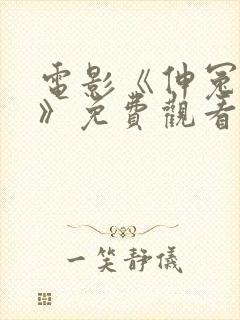 電影《伸冤
》免費觀看
一笑靜儀